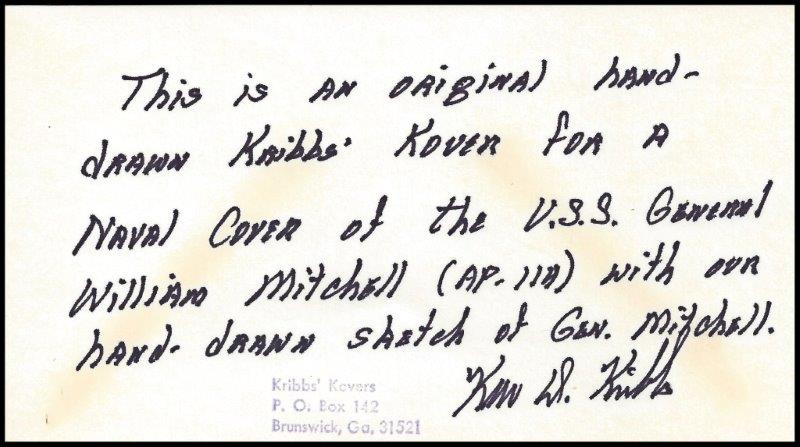 This is an original hand-
drawn Kribbs' Kover for a
Naval Cover of the U.S.S. General
William Mitchell (AP-114) with our
hand-drawn sketch of Gen. Mitchell.
Ken D. Kribbs
Kribbs' Kovers
P. O. Box 142
Brunswick, Ga. 31521